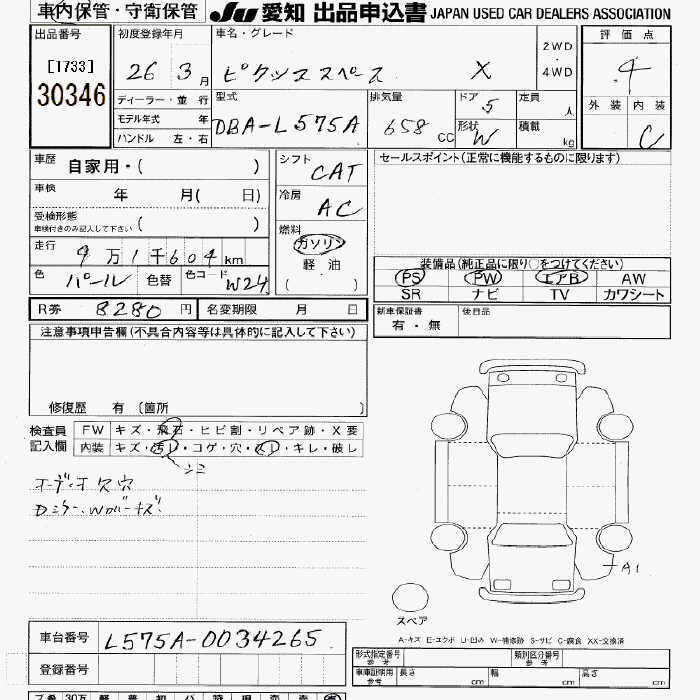 車内保管・守衛保管 JU 愛知 出品申込書 JAPAN USED CAR DEALERS ASSOCIATION
出品番号 初度登録年月 車名・グレード 2WD・4WD 評価点
[1733] 26 3月 X 4
30346 ディーラー・並行 型式 排気量 ドア 定員 外装 内装
モデル年式 年 DBA-L575A 658 CC 5 人
ハンドル 左・右 形状 W 積載 kg C
車歴 自家用・( ) シフト CAT セールスポイント(正常に機能するものに限ります)
車検 年 月( 日) 冷房 AC
受検形態 ( )
車検付きのみ記入して下さい 燃料
走行 9万1千604km ガソリン
色 パール 色替 色コード W24 軽・油
( )
装備品(純正品に限り○をつけてください)
PS PW エアB AW
SR ナビ TV カワシート
R券 8280円 名変期限 月 日 新車保証書 後日品
有・無
注意事項申告欄(不具合内容等は具体的に記入して下さい)
修復歴 有 〔箇所 〕
検査員 FW キズ・飛石・ヒビ割・リペア跡・X要
記入欄 内装 キズ・汚レ・コゲ・穴・スレ・キレ・破レ
シミ
オーディオ欠穴
A1
スペア
A-キズ E-エクボ U-凹み W-補修跡 S-サビ C-腐食 XX-交換済
車台番号 L575A-0034265
登録番号
形式指定番号 参考 類別区分番号 参考
車庫証明用 参考 長さ cm 幅 cm 高さ cm